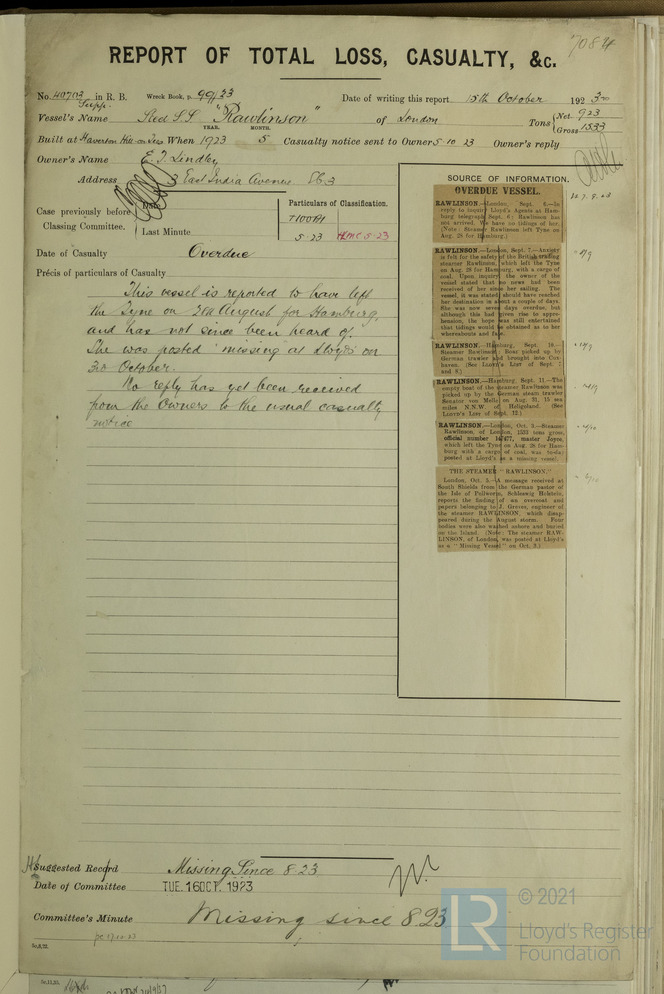 7084
REPORT OF TOTAL LOSS, CASUALTY, &c.
No. 40703 in R. B. Wreck Book, p. 99/23 Date of writing this report 15th October 1923
Supp.
Vessel's Name Steel S.S. "Rawlinson" of London Tons { Net. 923
Gross 1533
YEAR. MONTH.
Built at Haverton Hill on Tees When 1923 5 Casualty notice sent to Owners 5 10 23 Owner's reply
Owner's Name E. T. Lindley
Address 3 East India Avenue E.C.3
Case previously before Classing Committee. { Date
Last Minute
Particulars of Classification.
+100A1
5.23 +LMC 5.23
Date of Casualty Overdue
Précis of particulars of Casualty
This vessel is reported to have left
the Tyne on 28th August for Hamburg,
and has not since been heard of.
She was posted "missing" at Lloyd's on
3rd October.
No reply has yet been received
from the Owners to the usual casualty
notice
SOURCE OF INFORMATION.
OVERDUE VESSEL.
RAWLINSON.—London, Sept. 6.—In
reply to inquiry Lloyd's Agents at Ham-
burg telegraph Sept. 6: Rawlinson has
not arrived. We have no tidings of her.
(Note: Steamer Rawlinson left Tyne on
Aug. 28 for Hamburg.)
RAWLINSON.—London, Sept. 7.—Anxiety
is felt for the safety of the British trading
steamer Rawlinson, which left the Tyne
on Aug. 28 for Hamburg, with a cargo of
coal. Upon inquiry, the owner of the
vessel stated that no news had been
received of her since her sailing. The
vessel, it was stated, should have reached
her destination in about a couple of days.
She was now seven days overdue, but
although this had given rise to appre-
hension, the hope was still entertained
that tidings would be obtained as to her
whereabouts and fate.
RAWLINSON.—Hamburg, Sept. 10.—
Steamer Rawlinson: Boat picked up by
German trawler and brought into Cux-
haven. (See Lloyd's List of Sept. 7
and 8.)
RAWLINSON.—Hamburg, Sept. 11.—The
empty boat of the steamer Rawlinson was
picked up by the German steam trawler
Senator von Melle on Aug. 31, 15 sea
miles N.N.W. of Heligoland. (See
Lloyd's List of Sept. 12.)
RAWLINSON.—London, Oct. 3.—Steamer
Rawlinson, of London, 1533 tons gross,
official number 147477, master Joyce,
which left the Tyne on Aug. 28 for Ham-
burg with a cargo of coal, was to-day
posted at Lloyd's as a missing vessel.
THE STEAMER "RAWLINSON."
London, Oct. 5.—A message received at
South Shields from the German pastor of
the Isle of Pellworm, Schleswig Holstein,
reports the finding of an overcoat and
papers belonging to J. Greves, engineer of
the steamer RAWLINSON, which disap-
peared during the August storm. Four
bodies were also washed ashore and buried
on the Island. (Note: The steamer RAW-
LINSON, of London, was posted at Lloyd's
as a "Missing Vessel" on Oct. 3.)
Suggested Record Missing Since 8.23
Date of Committee TUE. 16 OCT. 1923
Committee's Minute Missing since 8 23
LR
© 2021
Lloyd's Register
Foundation